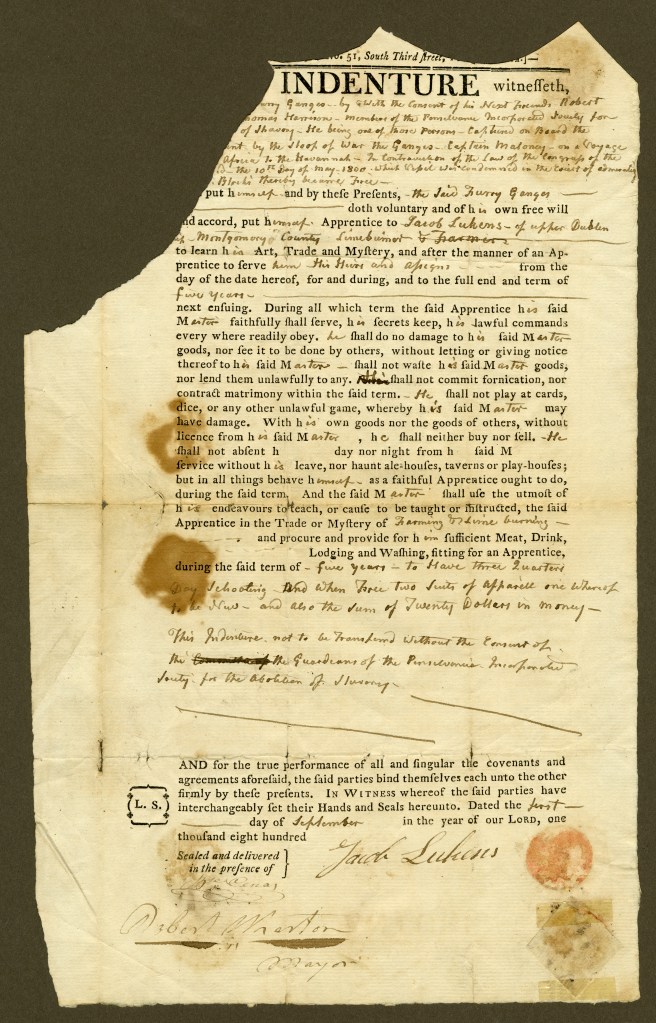 No. 51, South Third ſtreet,
INDENTURE witneſſeth,
Furry Ganges - by & With the Consent of his Next Friends Robert
Thomas Harrison - Members of the Pensilvania Incorporated Society for
of Slavery - He being one of those Persons - Captured on Board the
by the Sloop of War the Ganges - Captain Maloney - on a Voyage
Africa to the Havannah - In Contravention of the Law of the Congress of the
the 10th Day of May 1800 - which Vessel was Condemned in the Court of Admiralty
Blacks thereby became Free -
put himself and by theſe Preſents, - the Said Furry Ganges
doth voluntary and of his own free will
and accord, put himself Apprentice to Jacob Lukens - of upper Dublin
Montgomery County Limeburner & Farmer
to learn his Art, Trade and Myſtery, and after the manner of an Ap-
prentice to ſerve him His Heirs and assigns from the
day of the date hereof, for and during, and to the full end and term of
five years -
next enſuing. During all which term the ſaid Apprentice his ſaid
Master faithfully ſhall ſerve, his ſecrets keep, his lawful commands
every where readily obey. he ſhall do no damage to his ſaid Master
goods, nor ſee it to be done by others, without letting or giving notice
thereof to his ſaid Master - ſhall not waſte his ſaid Master goods,
nor lend them unlawfully to any. ſhall not commit fornication, nor
contract matrimony within the ſaid term. - He ſhall not play at cards,
dice, or any other unlawful game, whereby his ſaid Master may
have damage. With his own goods nor the goods of others, without
licence from his ſaid Master , he ſhall neither buy nor ſell. - He
ſhall not abſent h day nor night from h ſaid M
ſervice without his leave, nor haunt ale-houſes, taverns or play-houſes;
but in all things behave himself - as a faithful Apprentice ought to do,
during the ſaid term. And the ſaid Master ſhall uſe the utmoſt of
his endeavours to teach, or cauſe to be taught or inſtructed, the ſaid
Apprentice in the Trade or Myſtery of Farming & Lime burning -
and procure and provide for him ſufficient Meat, Drink,
Lodging and Waſhing, fitting for an Apprentice,
during the ſaid term of - five years - to Have three Quarters
Day Schooling - And when Free two Suits of Apparell one Whereof
to be New - and also the Sum of Twenty Dollars in money -
This Indenture not to be Transferd Without the Consent of
the the Guardians of the Pensilvania Incorporated
Society for the Abolition of Slavery -
AND for the true performance of all and ſingular the covenants and
agreements aforeſaid, the ſaid parties bind themſelves each unto the other
firmly by theſe preſents. IN WITNESS whereof the ſaid parties have
interchangeably ſet their Hands and Seals hereunto. Dated the first -
L. S.
day of September in the year of our LORD, one
thouſand eight hundred
Sealed and delivered
in the preſence of
Jacob Lukens
Robert Wharton
Mayor